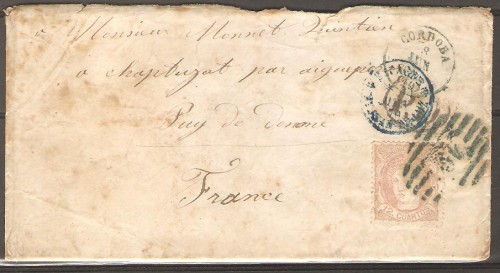 Monsieur Monnet Quintien
a chaptuzat par aigueperse
Puy de dome
France
CORDOBA
8
JUN
12 CUANTOS